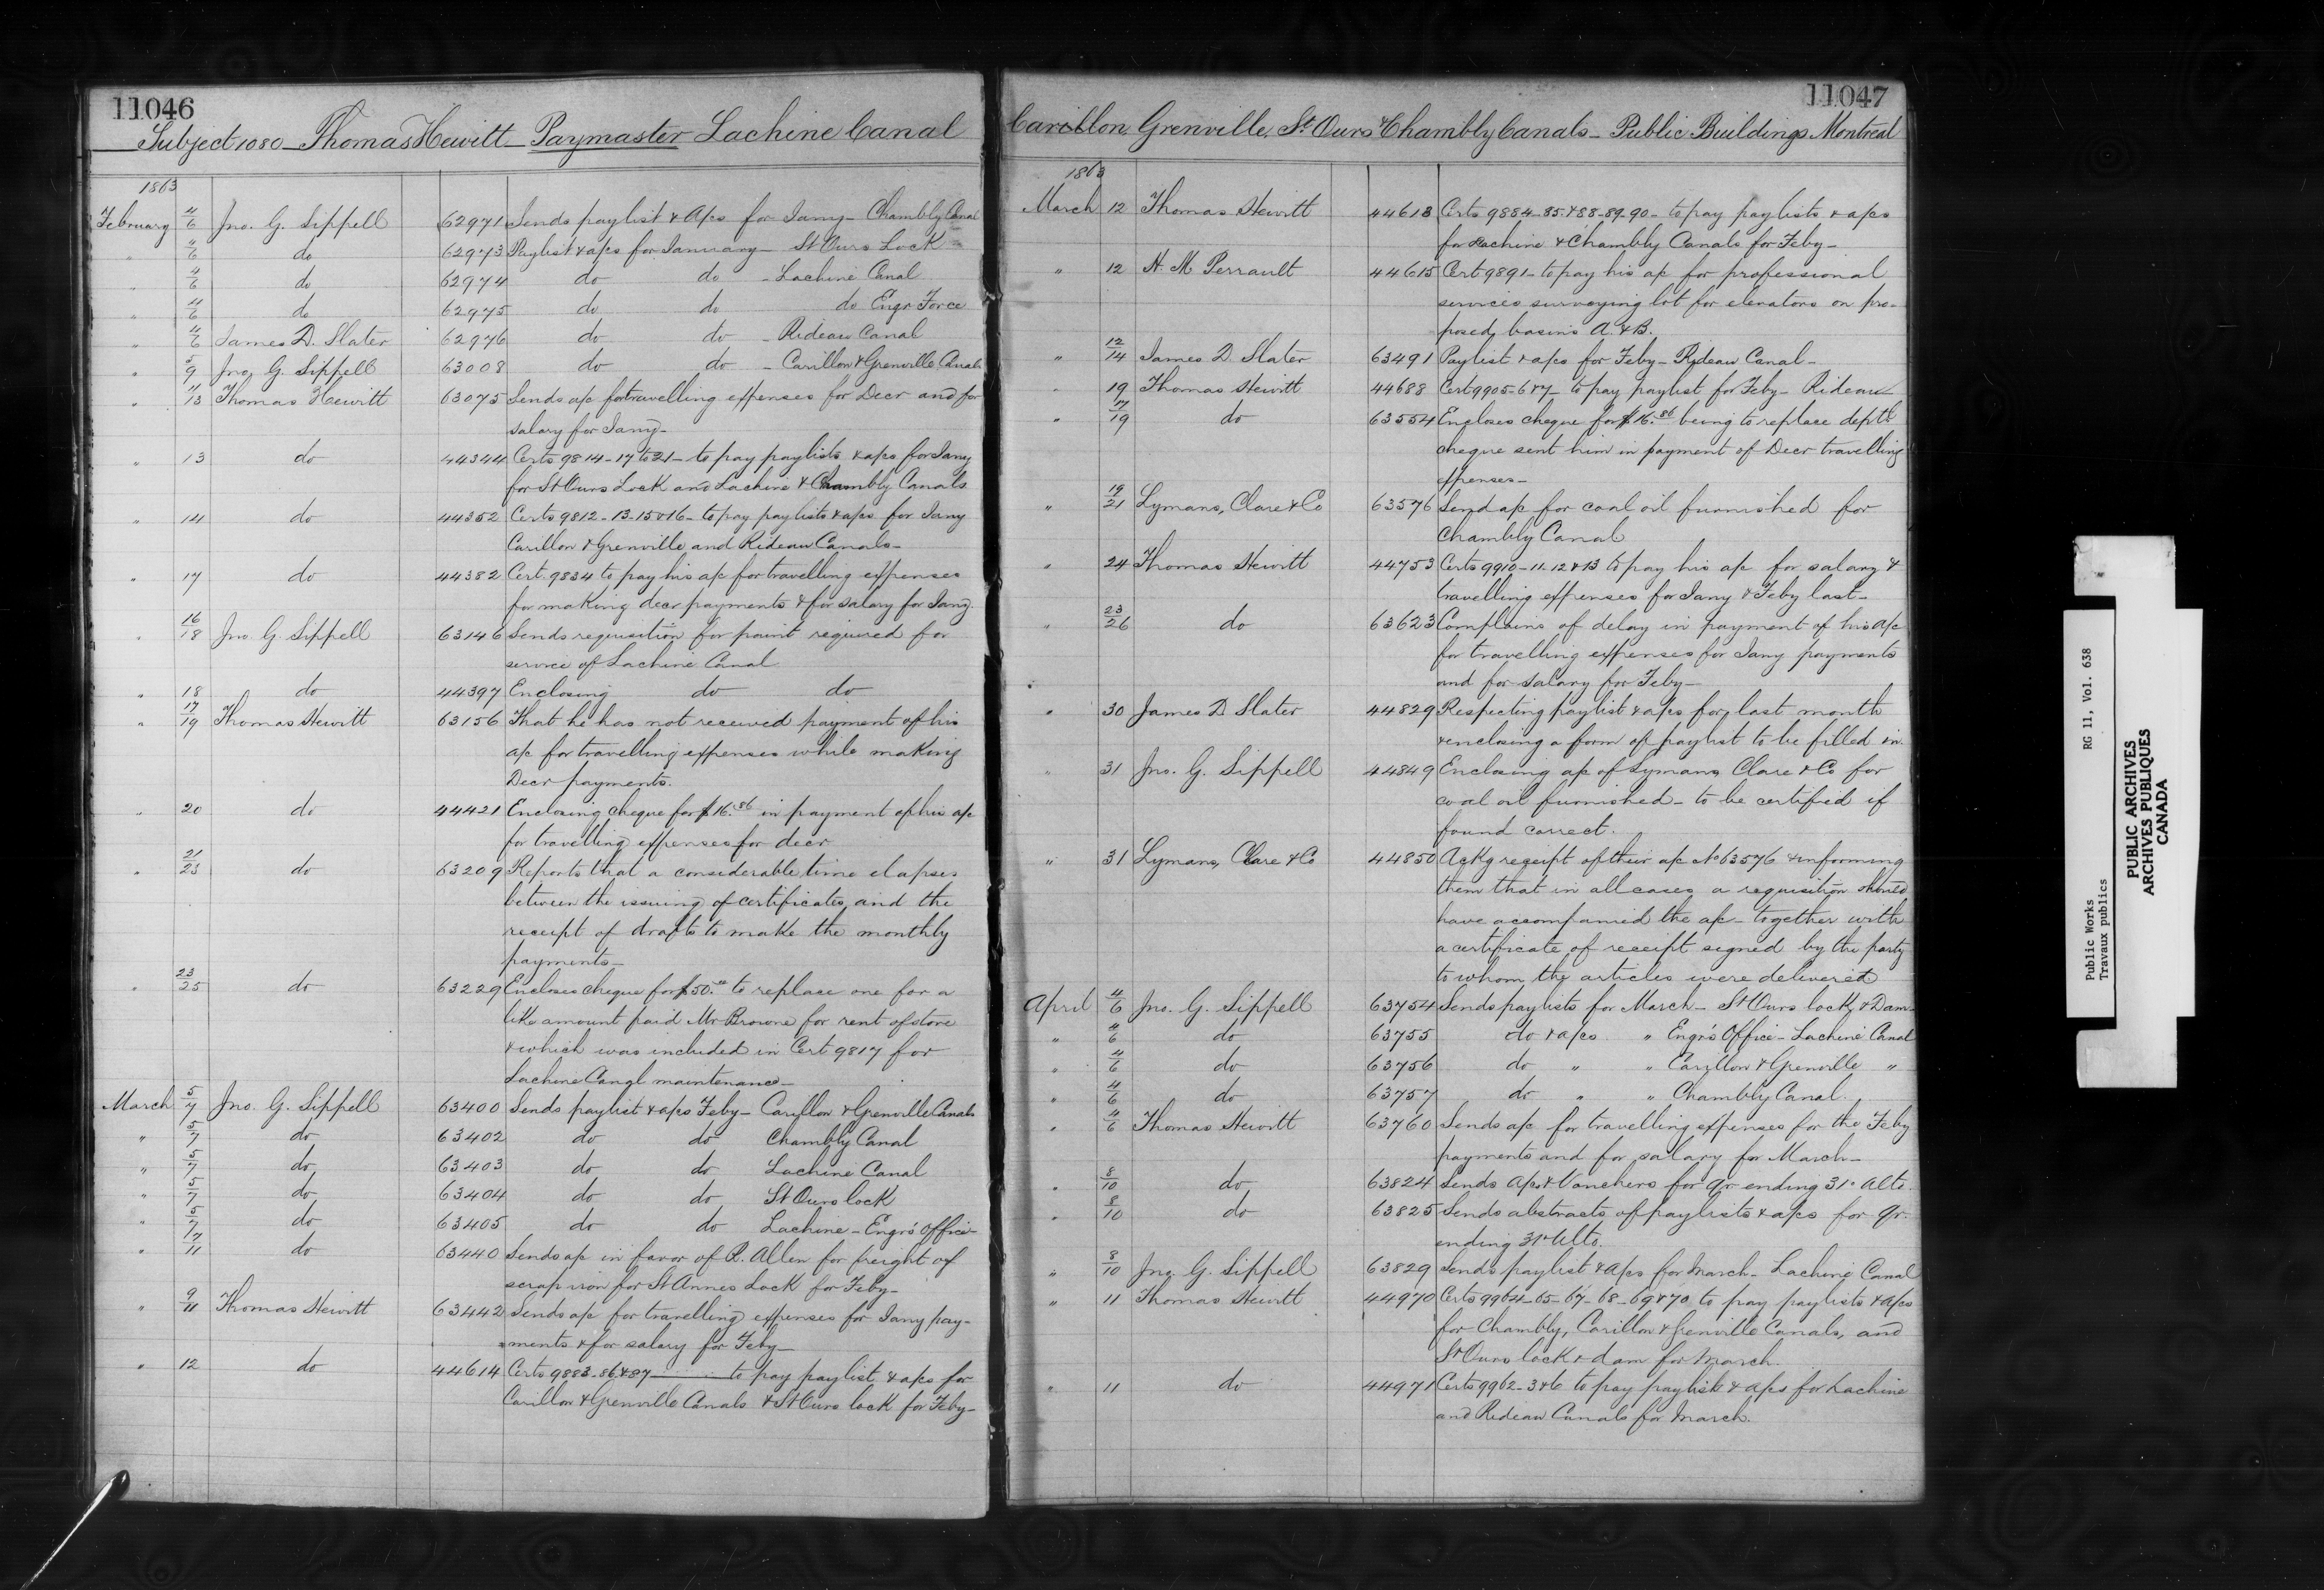 11046
Subject 1080 - Thomas Hewitt - Paymaster Lachine Canal
1863
February 4/6 Jno. G. Sippell 62971 Sends paylist & a/cs for Jany - Chambly Canal
" 4/6 do 62973 Paylist & a/cs for January - St Ours Lock
" 4/6 do 62974 do do - Lachine Canal
" 4/6 do 62975 do do do Engr. Force
" 4/6 James D. Slater 62976 do do - Rideau Canal
" 5/9 Jno. G. Sippell 63008 do do - Carillon & Grenville Canals
" 11/13 Thomas Hewitt 63075 Sends a/c for travelling expenses for Decr and for
salary for Jany -
" 13 do 44344 Certs 9814-17 to 21 - to pay paylists & a/cs for Jany
for St Ours Lock and Lachine & Chambly Canals
" 14 do 44352 Certs 9812-13-15 & 16 - to pay paylists & a/cs for Jany
Carillon & Grenville and Rideau Canals -
" 17 do 44382 Cert. 9834 to pay his a/c for travelling expenses
for making decr payments & for salary for Jany.
" 16/18 Jno G. Sippell 63146 Sends requisition for paint required for
service of Lachine Canal
" 18 do 44397 Enclosing do do
" 17/19 Thomas Hewitt 63156 That he has not received payment of his
a/c for travelling expenses while making
Decr payments.
" 20 do 44421 Enclosing cheque for $16.86 in payment of his a/c
for travelling expenses for decr
" 21/23 do 63209 Reports that a considerable time elapses
between the issuing of certificates, and the
receipt of drafts to make the monthly
payments -
" 23/25 do 63229 Encloses cheque for $50.00 to replace one for a
like amount paid Mr Browne for rent of store
& which was included in Cert 9817 for
Lachine Canal maintenance -
March 5/7 Jno. G. Sippell 63400 Sends paylist & a/cs Feby - Carillon & Grenville Canals
" 5/7 do 63402 do do Chambly Canal
" 5/7 do 63403 do do Lachine Canal
" 5/7 do 63404 do do St Ours lock
" 5/7 do 63405 do do Lachine - Engr's Office -
" 7/11 do 63440 Sends a/c in favor of R. Allen for freight of
scrap iron for St Annes Lock for Feby -
" 9/11 Thomas Hewitt 63442 Sends a/c for travelling expenses for Jany pay-
ments & for salary for Feby -
" 12 do 44614 Certs 9883-86 & 87 - to pay paylist & a/cs for
Carillon & Grenville Canals & St Ours lock for Feby -
11047
Carillon Grenville, St Ours & Chambly Canals - Public Buildings Montreal
1863
March 12 Thomas Hewitt 44613 Certs 9884-85 & 88-89-90 - to pay paylists & a/cs
for Lachine & Chambly Canals for Feby -
" 12 H. M Perrault 44615 Cert 9891 - to pay his a/c for professional
services surveying lot for elevators on pro-
posed basins A. & B.
" 12/14 James D. Slater 63491 Paylist & a/cs for Feby - Rideau Canal -
" 19 Thomas Hewitt 44688 Cert 9905-6 & 7 - to pay paylist for Feby - Rideau
" 17/19 do 63554 Encloses cheque for $16.86 being to replace deptl
cheque sent him in payment of Decr travelling
expenses -
" 19/21 Lymans, Clare & Co 63576 Send a/c for coal oil furnished for
Chambly Canal
" 24 Thomas Hewitt 44753 Certs 9910-11-12 & 13 to pay his a/c for salary &
travelling expenses for Jany & Feby last -
" 23/26 do 63623 Complains of delay in payment of his a/c
for travelling expenses for Jany payments
and for salary for Feby -
" 30 James D Slater 44829 Respecting paylist & a/cs for last month
& enclosing a form of paylist to be filled in.
" 31 Jno. G. Sippell 44849 Enclosing a/c of Lymans Clare & Co for
coal oil furnished - to be certified if
found correct.
" 31 Lymans, Clare & Co 44850 Ackg receipt of their a/c No 63576 & informing
them that in all cases a requisition should
have accompanied the a/c - together with
a certificate of receipt signed by the party
to whom the articles were delivered
April 4/6 Jno. G. Sippell 63754 Sends paylists for March - St Ours lock & Dam -
" 4/6 do 63755 do & a/cs " Engr's Office - Lachine Canal
" 4/6 do 63756 do " " Carillon & Grenville "
" 4/6 do 63757 do " " Chambly Canal.
" 4/6 Thomas Hewitt 63760 Sends a/c for travelling expenses for the Feby
payments and for salary for March -
" 8/10 do 63824 Sends a/cs & Vouchers for qr ending 31st Ulto.
" 8/10 do 63825 Sends abstracts of paylists & a/cs for qr.
ending 31st Ulto.
" 8/10 Jno. G. Sippell 63829 Sends paylist & a/cs for March - Lachine Canal
" 11 Thomas Hewitt 44970 Certs 9964-65-67-68-69 & 70 to pay paylists & a/cs
for Chambly, Carillon & Grenville Canals, and
St Ours lock & dam for March.
" 11 do 44971 Certs 9962-3 & 6 to pay paylist & a/cs for Lachine
and Rideau Canals for March.
Public Works RG 11, Vol. 638
Travaux publics
PUBLIC ARCHIVES
ARCHIVES PUBLIQUES
CANADA